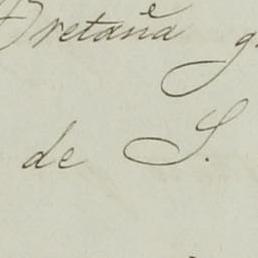 Bretaña g
de S.